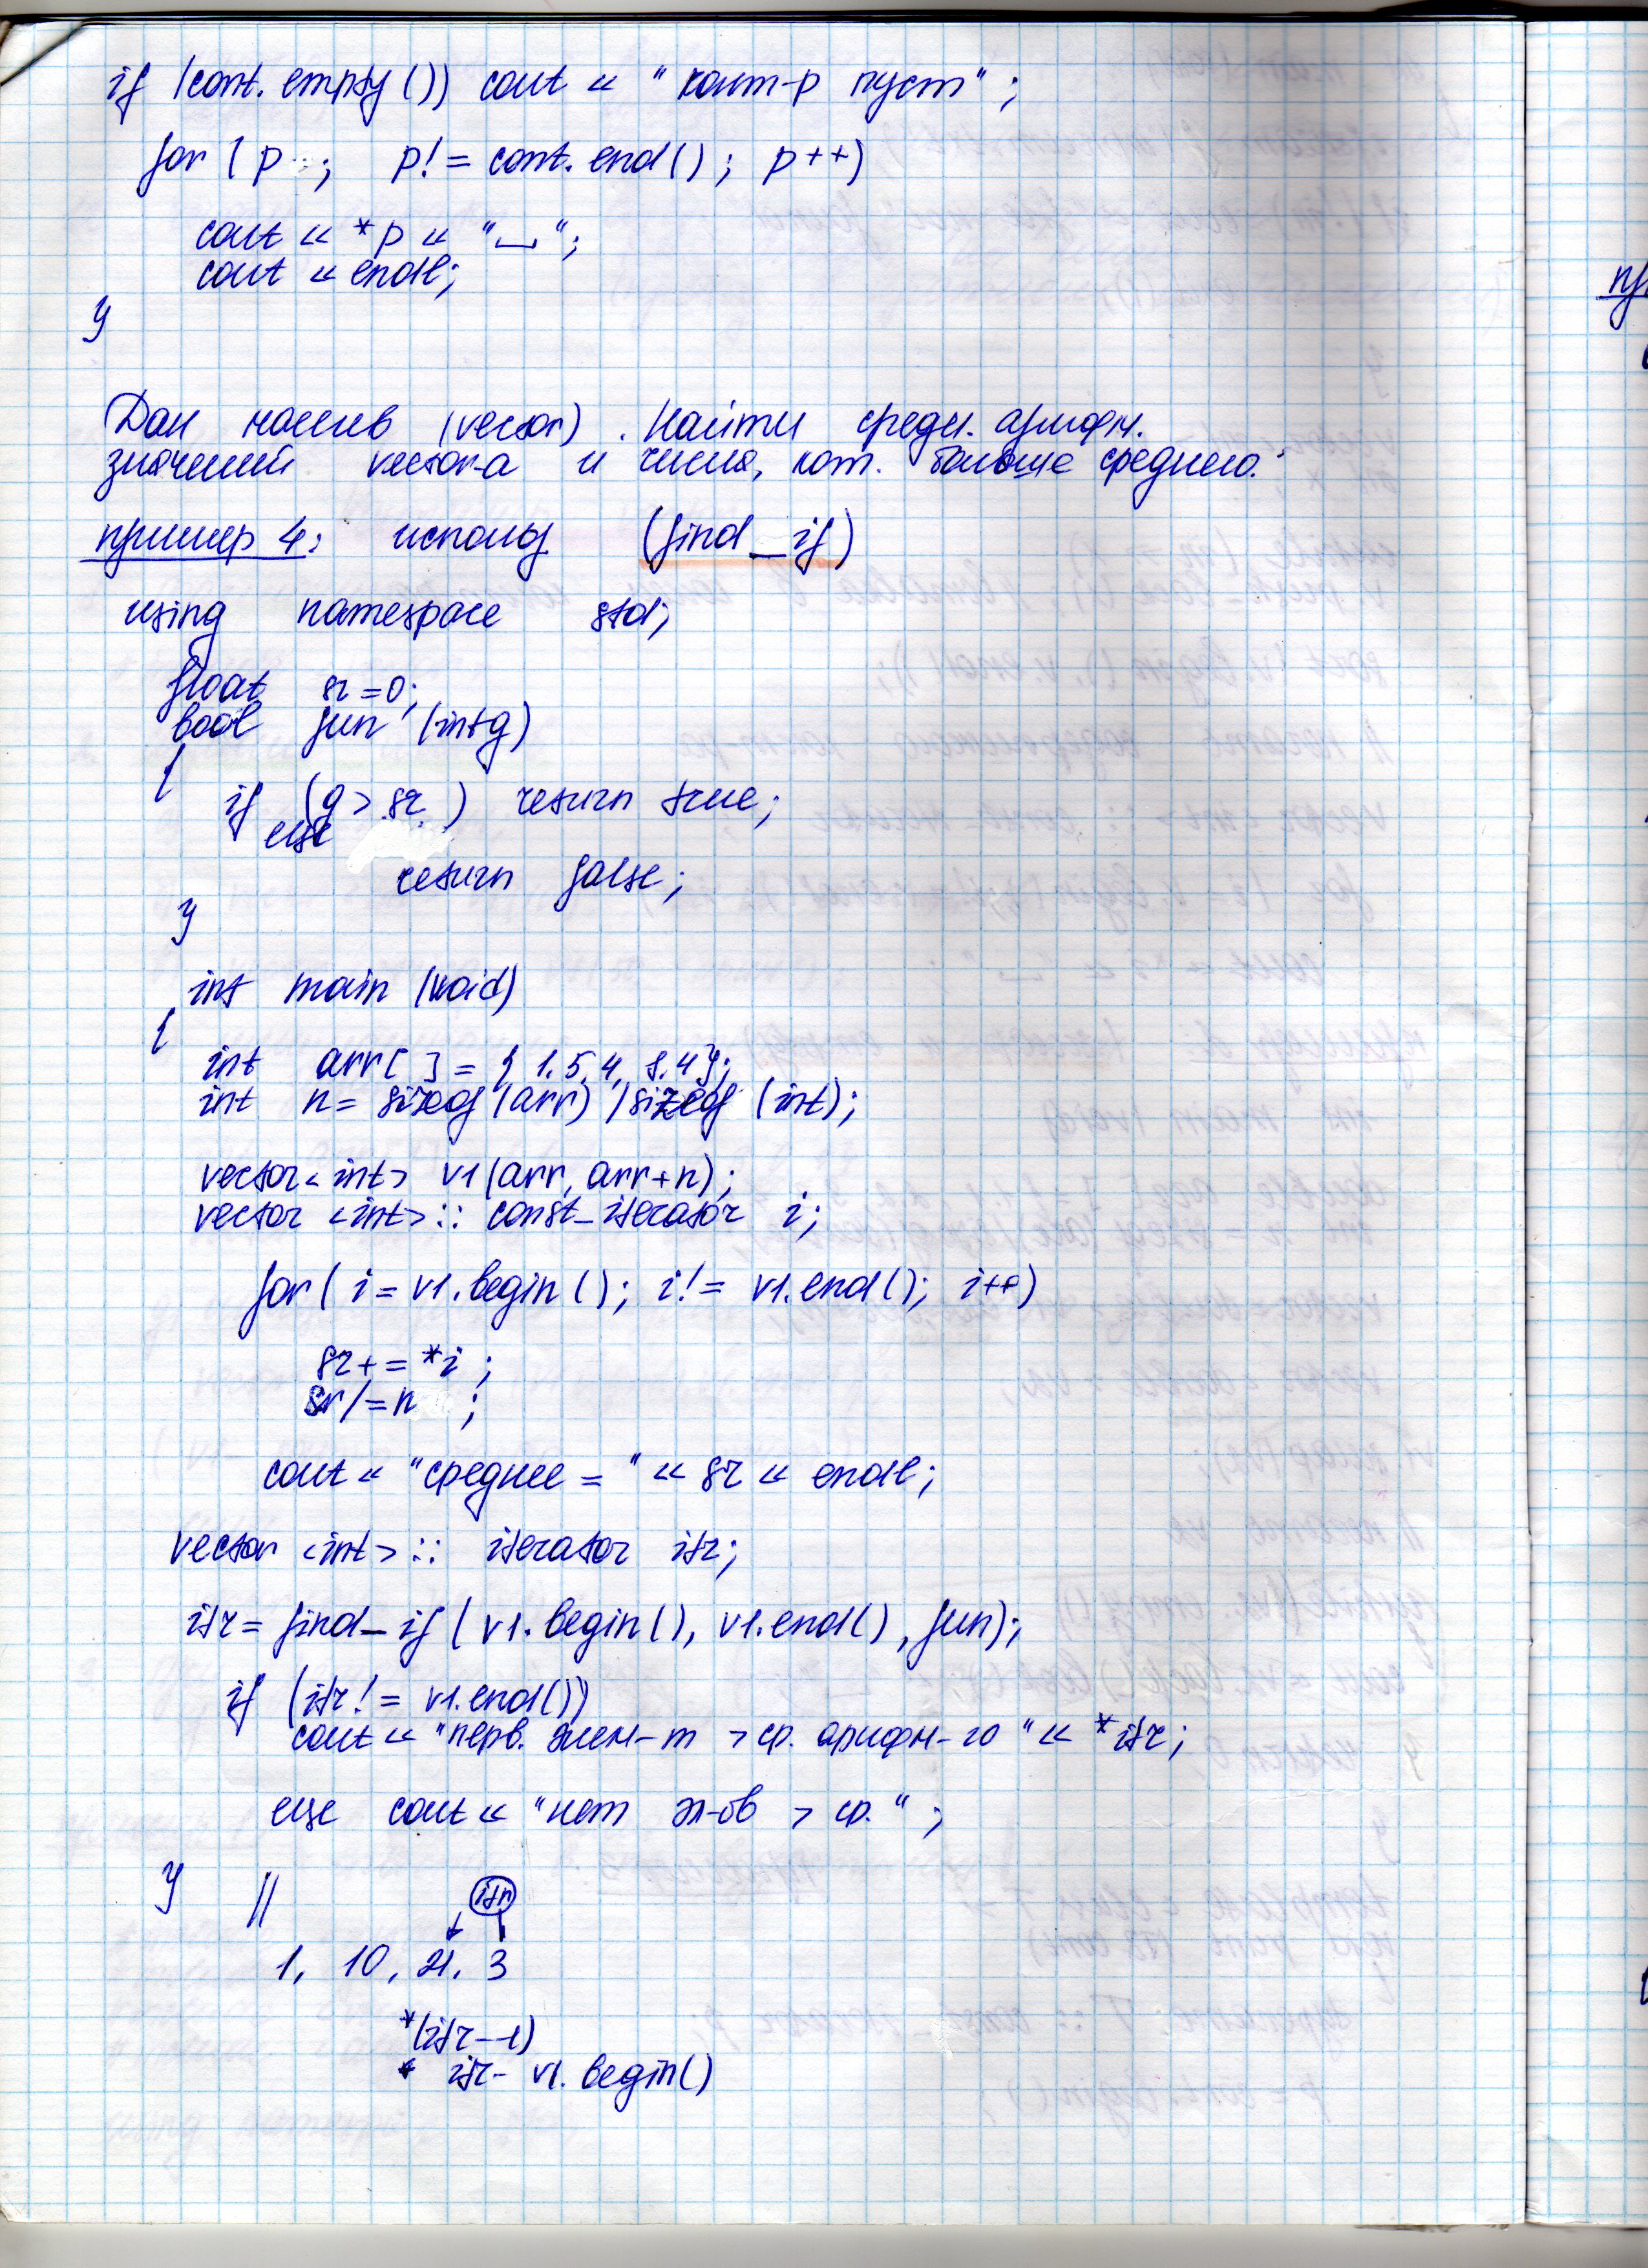 if (cont.empty()) cout << "конт-р пуст";
for (p ; p != cont.end(); p++)
cout << *p << "␣";
cout << endl;
}
Дан массив (vector). Найти средн. арифм.
значений vector-а и числа, кот. больше среднего.
пример 4: использ (find_if)
using namespace std;
float sr=0;
bool fun (int g)
{
if (g > sr ) return true;
else
return false;
}
int main (void)
{
int arr[ ] = { 1, 5, 4, 8, 4};
int n= sizeof (arr) /sizeof (int);
vector<int> v1(arr, arr+n);
vector <int>:: const_iterator i;
for( i = v1.begin (); i != v1.end(); i++)
sr+= *i ;
sr/=n ;
cout << "среднее = " << sr << endl;
vector <int>:: iterator itr;
itr= find_if ( v1.begin(), v1.end(), fun);
if (itr != v1.end())
cout << "перв. элем-т > ср. арифм-го" << *itr;
else cout << "нет эл-ов > ср." ;
} //
itr
1, 10, 21, 3
*(itr-1)
* itr- v1.begin()